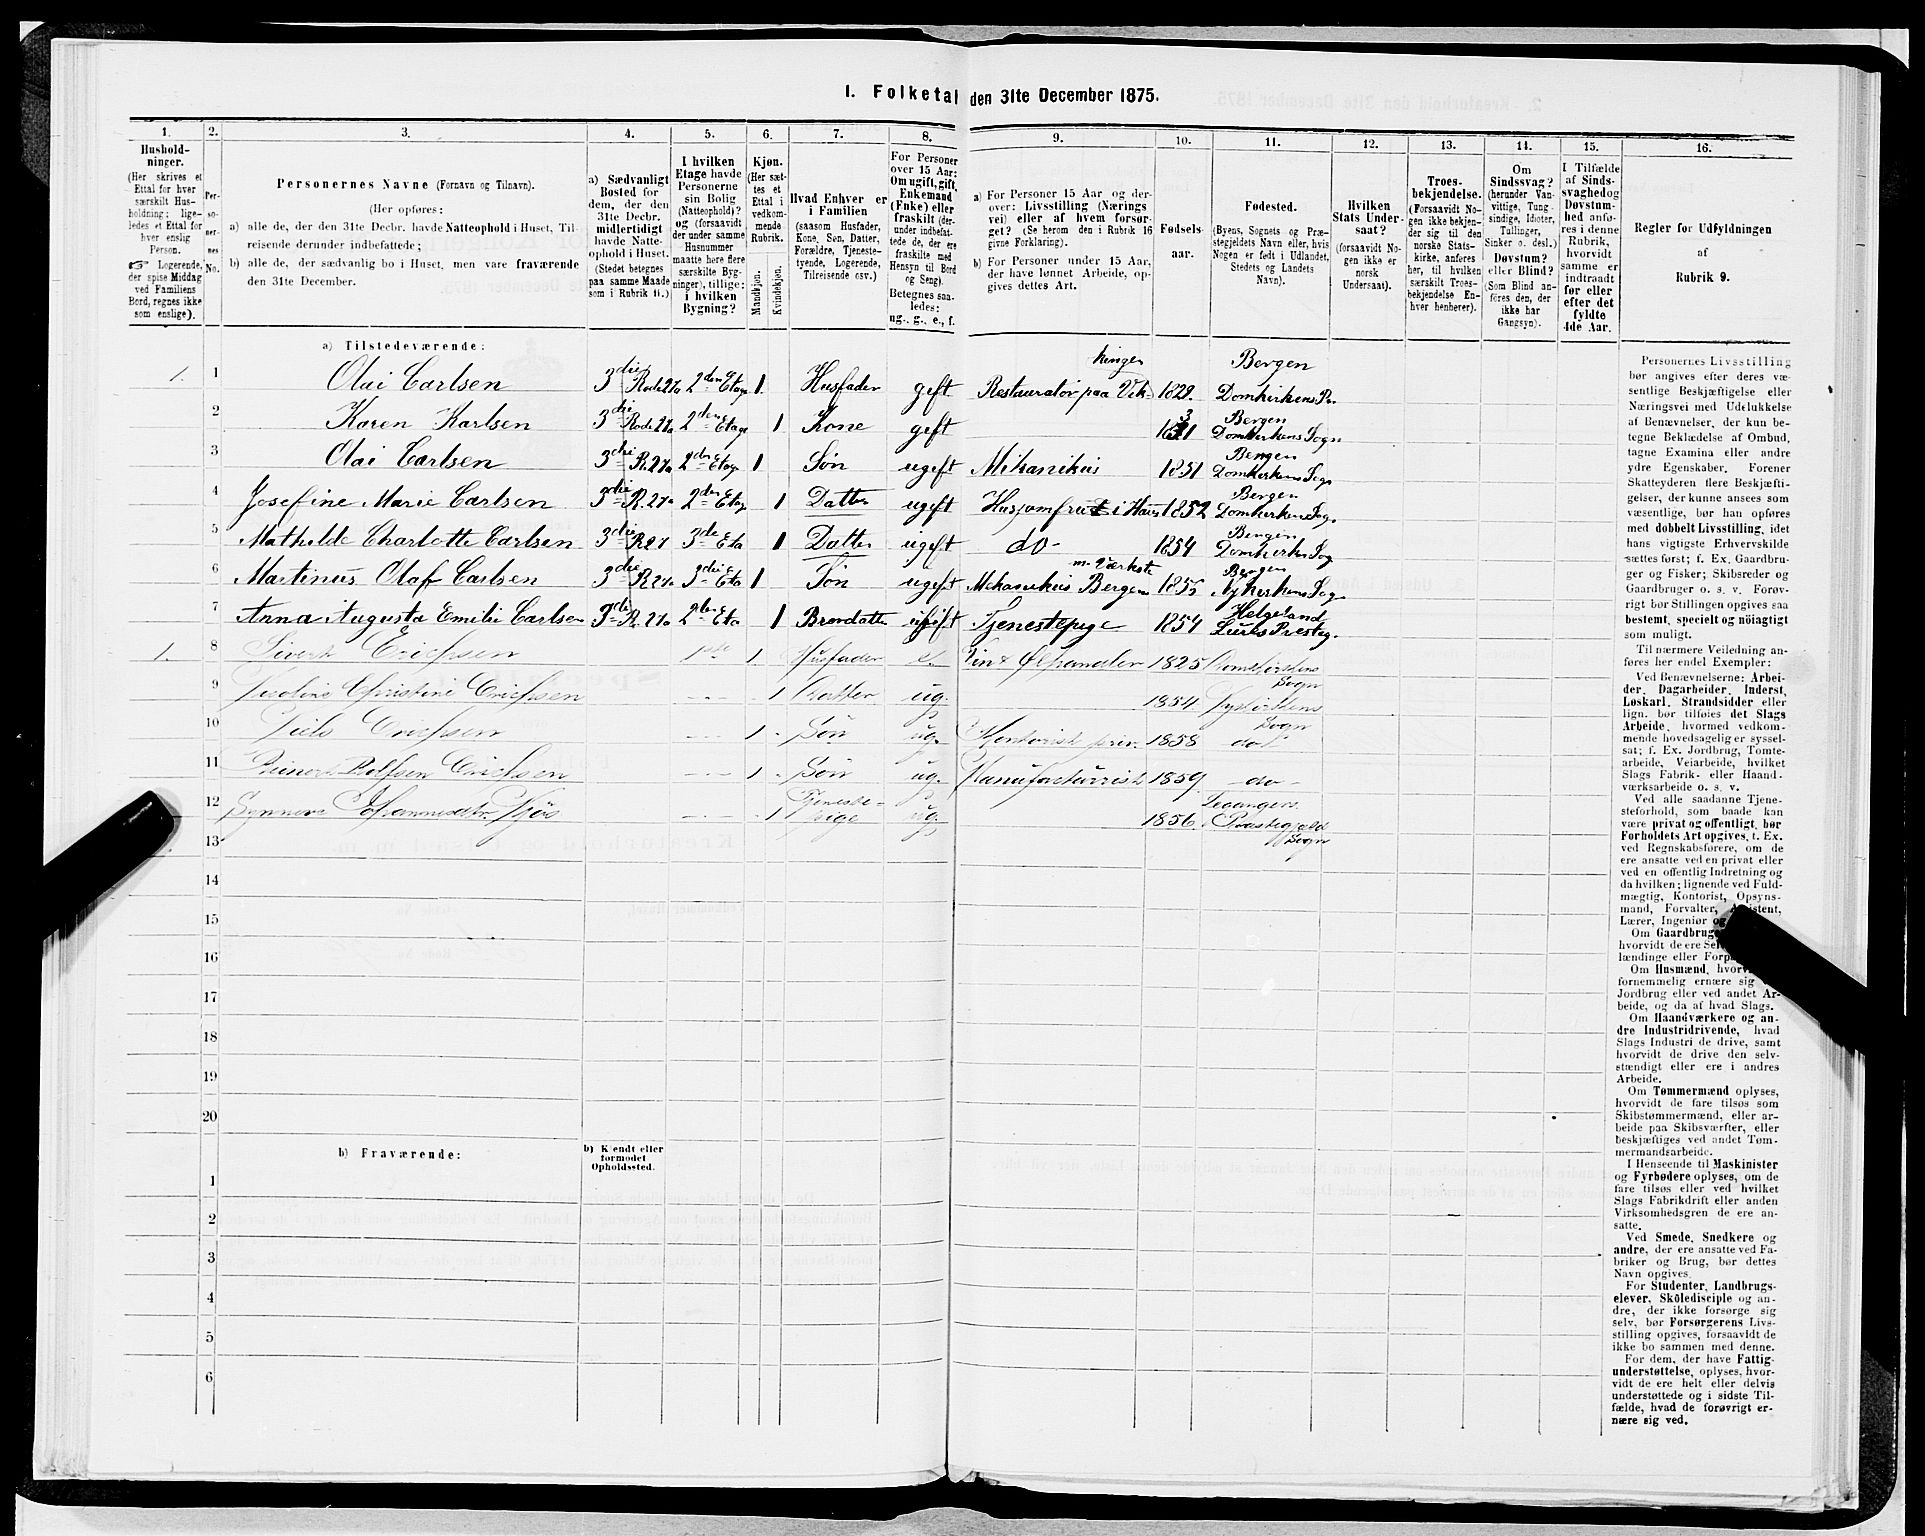 I. Folketal den 31te December 1875.
1. 2. 3. 4. 5. 6. 7. 8. 9. 10. 11. 12. 13. 14. 15. 16.
Hushold-
ninger.
(Her skrives et
Ettal for hver
særskilt Hus-
holdning; lige-
ledes et Ettal for
hver enslig
Person.
☞ Logerende,
der spise Middag
ved Familiens
Bord, regnes ikke
som enslige).
Per-
so-
ner-
nes
No.
Personernes Navne (Fornavn og Tilnavn).
(Her opføres:
a) alle de, der den 31te Decbr. havde Natteophold i Huset, Til-
reisende derunder indbefattede;
b) alle de, der sædvanlig bo i Huset, men vare fraværende
den 31te December.
a) Sædvanligt
Bosted for
dem, der den
31te Decbr.
midlertidigt
havde Natte-
ophold i Huset.
(Stedet betegnes
paa samme Maade
som i Rubrik 11.)
I hvilken
Etage havde
Personerne
sin Bolig
(Natteophold)?
og (forsaavidt
der under samme
Husnummer
maatte høre flere
særskilte Byg-
ninger), tillige:
i hvilken
Bygning?
Kjøn.
(Her sæt-
tes et
Ettal i
vedkom-
mende
Rubrik.
Mandkjøn.
Kvindekjøn.
Hvad Enhver er
i Familien
(saasom Husfader,
Kone, Søn, Datter,
Forældre, Tjeneste-
tyende, Logerende,
Tilreisende osv.)
For Personer
over 15 Aar:
Om ugift, gift,
Enkemand
(Enke) eller
fraskilt (der-
under indbefat-
tede de, der ere
fraskilte med
Hensyn til Bord
og Seng).
Betegnes saa-
ledes:
ug., g., e., f.
a) For Personer 15 Aar og der-
over: Livsstilling (Nærings
vei) eller af hvem forsør-
get? (Se herom den i Rubrik 16
givne Forklaring).
b) For Personer under 15 Aar,
der have lønnet Arbeide, op-
gives dettes Art.
Fødsels-
aar.
Fødested.
(Byens, Sognets og Præ-
stegjeldets Navn eller, hvis
Nogen er født i Udlandet,
Stedets og Landets
Navn).
Hvilken
Stats Under-
saat?
(forsaavidt No-
gen ikke er
norsk
Undersaat).
Troes-
bekjendelse.
(Forsaavidt No-
gen ikke bekjen-
der sig til den
norske Stats-
kirke, anføres
her, til hvilken
særskilt Troes-
bekjendelse En-
hver henhører).
Om
Sindssvag?
(herunder Van-
vittige, Tung-
sindige, Idioter,
Tullinger,
Sinker o. desl.)
Døvstum?
eller Blind?
(Som Blind an-
føres den, der
ikke har
Gangsyn).
I Tilfælde
af Sinds-
svaghed og
Døvstum-
hed anfø-
res i denne
Rubrik,
hvorvidt
samme er
indtraadt
før eller
efter det
fyldte
4de Aar.
Regler for Udfyldningen
af
Rubrik 9.
a) Tilstedeværende:
1. 1 Olai Carlsen 3die Rode 27a 2den Etage 1. Husfader geft Restauratør paa Vikingen 1829. Bergen Domkirkens Pr.
2 Karen Karlsen 3die Rode 27a 2den Etage 1 Kone geft Bergen Domkirkens Sogn
3 Olai Carlsen 3die R. 27a 2den Etage 1 Søn ugeft Mikanikus 1851 Bergen Domkirkens Sogn
4 Josefine Marie Carlsen 3die R. 27a 2den Etage 1 Datter ugeft Husjomfru i Huus 1852 Bergen Domkirkens Sog.
5 Mathilde Charlotte Carlsen 3die R 27 3de Eta 1 Datter ugeft do 1854 Bergen Domkirke Sog
6 Martinus Olaf Carlsen 3die R 27a 3die Eta 1 Søn ugeft Mekanikus Bergens m. Værkste 1855 Bergen Nykirkens Sog.
7 Anna Augusta Emilie Carlsen 3die R. 27a 2den Eta 1 Brordatter Tjenestepige 1854 Helgeland Lurøs Presteg.
1. 8 Sivert Erichsen 1ste 1. Husfader e. Vin & Ølhandler 1825 Domkirkens Sogn
9 Nicoline Christine Erichsen 1 Datter ug. 1854 Nykirkens Sogn
10 Niels Erichsen 1. Søn ug. Kontorist priv. 1858 do
11 Reinert Rolfsen Erichsen 1. Søn ug. Manufacturrist 1859 do
12 Synneve Johannesdtr. 1 Tjeneste-pige ug. 1856 Leganger Præstegjeld Sogn
13
14
15
16
17
18
19
20
b) Fraværende:
b) Kjendt eller
formodet
Opholdssted.
1
2
3
4
5
6
Personernes Livsstilling
bør angives efter deres væ-
sentlige Beskjæftigelse eller
Næringsvei med Udelukkelse
af Benævnelser, der kun be-
tegne Beklædelse af Ombud,
tagne Examina eller andre
ydre Egenskaber. Forener
Skatteyderen flere Beskjæfti-
gelser, der kunne ansees som
væsentlige, bør han opføres
med dobbelt Livsstilling, idet
hans vigtigste Erhvervskilde
sættes først; f. Ex. Gaardbru-
ger og Fisker; Skibsreder og
Gaardbruger o. s. v. Forøv-
rigt bør Stillingen opgives saa
bestemt, specielt og nöiagtigt
som muligt.
Til nærmere Veiledning an-
føres her endel Exempler:
Ved Benævnelserne: Arbei-
der, Dagarbeider, Inderst,
Løskarl, Strandsidder eller
lign. bør tilføies det Slags
Arbeide, hvormed vedkom-
mende hovedsagelig er syssel-
sat; f. Ex. Jordbrug, Tomte-
arbeide, Veiarbeide, hvilket
Slags Fabrik- eller Haand-
værksarbeide o. s. v.
Ved alle saadanne Tjene-
steforhold, som baade kan
være privat og offentligt, bør
Forholdets Art opgives, t. Ex.
ved Regnskabsførere, om de
ere ansatte ved en privat eller
ved en offentlig Indretning og
da hvilken; lignende ved Fuld-
mægtig, Kontorist, Opsyns-
mand, Forvalter, Assistent,
Lærer, Ingeniør og
Om Gaardbruge
hvorvidt de ere Sel
lændinge eller Forpa
Om Husmænd, hvorv
fornemmelig ernære sig
Jordbrug eller ved andet Ar-
beide, og da af hvad Slags.
Om Haandværkere og an-
dre Industridrivende, hvad
Slags Industri de drive, samt
hvorvidt de drive den selv-
stændigt eller ere i andres
Arbeide.
Om Tømmermænd oplyses,
hvorvidt de fare tilsøs som
Skibstømmermænd, eller ar-
beide paa Skibsværfter, eller
beskjæftiges ved andet Tøm-
mermandsarbeide.
I Henseende til Maskinister
og Fyrbødere oplyses, om de
fare tilsøs eller ved hvilket
Slags Fabrikdrift eller anden
Virksomhedsgren de ere an-
satte.
Ved Smede, Snedkere og
andre, der ere ansatte ved Fa-
briker og Brug, bør dettes
Navn opgives.
For Studenter, Landbrugs-
elever, Skoledisciple og an-
dre, der ikke forsørge sig
selv, bør Forsørgerens Livs-
stilling opgives, forsaavidt de
ikke bo sammen med denne.
For dem, der have Fattig-
understøttelse, oplyses, hvor-
vidt de ere helt eller delvis
understøttede og i sidste Til-
fælde, hvad de forøvrigt er-
nære sig ved.